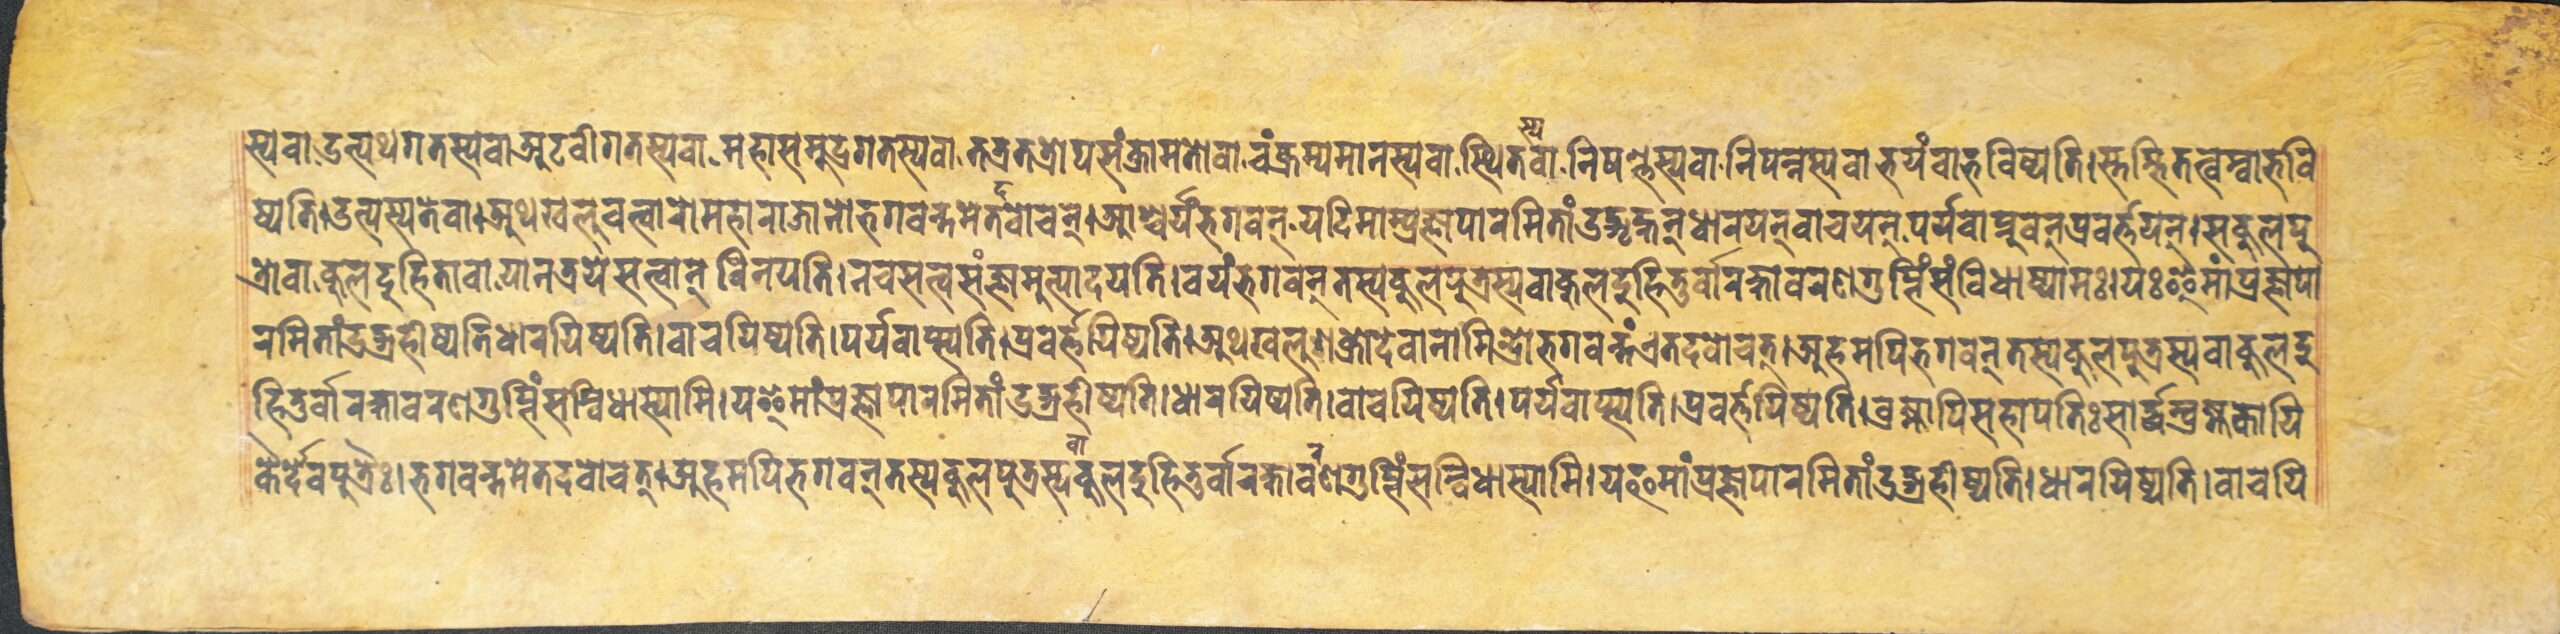 स्य वा उत्पथगतस्य वा अटवीगतस्य वा महासमुद्रगतस्य वा तत्र तत्रोपसंक्रामतो वा चंक्रम्यमानस्य वा स्थितस्य वा निषण्णस्य वा निपन्नस्य वा भयं वा भविष्यति। स्तम्भितत्वम्वा भवि
ष्यति। उत्पत्स्यते वा। अथ खलु चत्वारो महाराजानो भगवन्तमेतदवोचन्। आश्चर्यं भगवन् यदिमाम्प्रज्ञापारमितां उद्गृह्नन् धारयन् वाचयन् पर्यवाप्नुवन् प्रवर्त्तयन्। स कुलपु
त्रो वा कुलदुहिता वा यानत्रये सत्वान् विनयति। न च सत्वसंज्ञामुत्पादयति। वयं भगवन् तस्य कुलपुत्रस्य वा कुलदुहितुर्वा रक्षावरणगुप्तिं संविधास्यामः। यः इमां प्रज्ञापा
रमितां उद्ग्रहीष्यति धारयिष्यति। वाचयिष्यति। पर्यवाप्स्यति। प्रवर्त्तयिष्यति। अथ खलु शक्रो देवानामिन्द्रो भगवन्तं एतदवोचत्। अहमपि भगवन् तस्य कुलपुत्रस्य वा कुलदु
हितुर्वा रक्षावरणगुप्तिं सम्विधास्यामि। य इमां प्रज्ञापारमितां उद्ग्रहीष्यति। धारयिष्यति। वाचयिष्यति। पर्यवाप्स्यति। प्रवर्त्तयिष्यति। ब्रह्मापि सहापतिः सार्द्धम्ब्रह्मकायि
कैर्देवपुत्रैः। भगवन्तमेतदवोचत्। अहमपि भगवन् तस्य कुलपुत्रस्य वा कुलदुहितुर्वा रक्षावरणगुप्तिं सम्विधास्यामि। य इमां प्रज्ञापारमितां उद्ग्रहीष्यति। धारयिष्यति। वाचयि